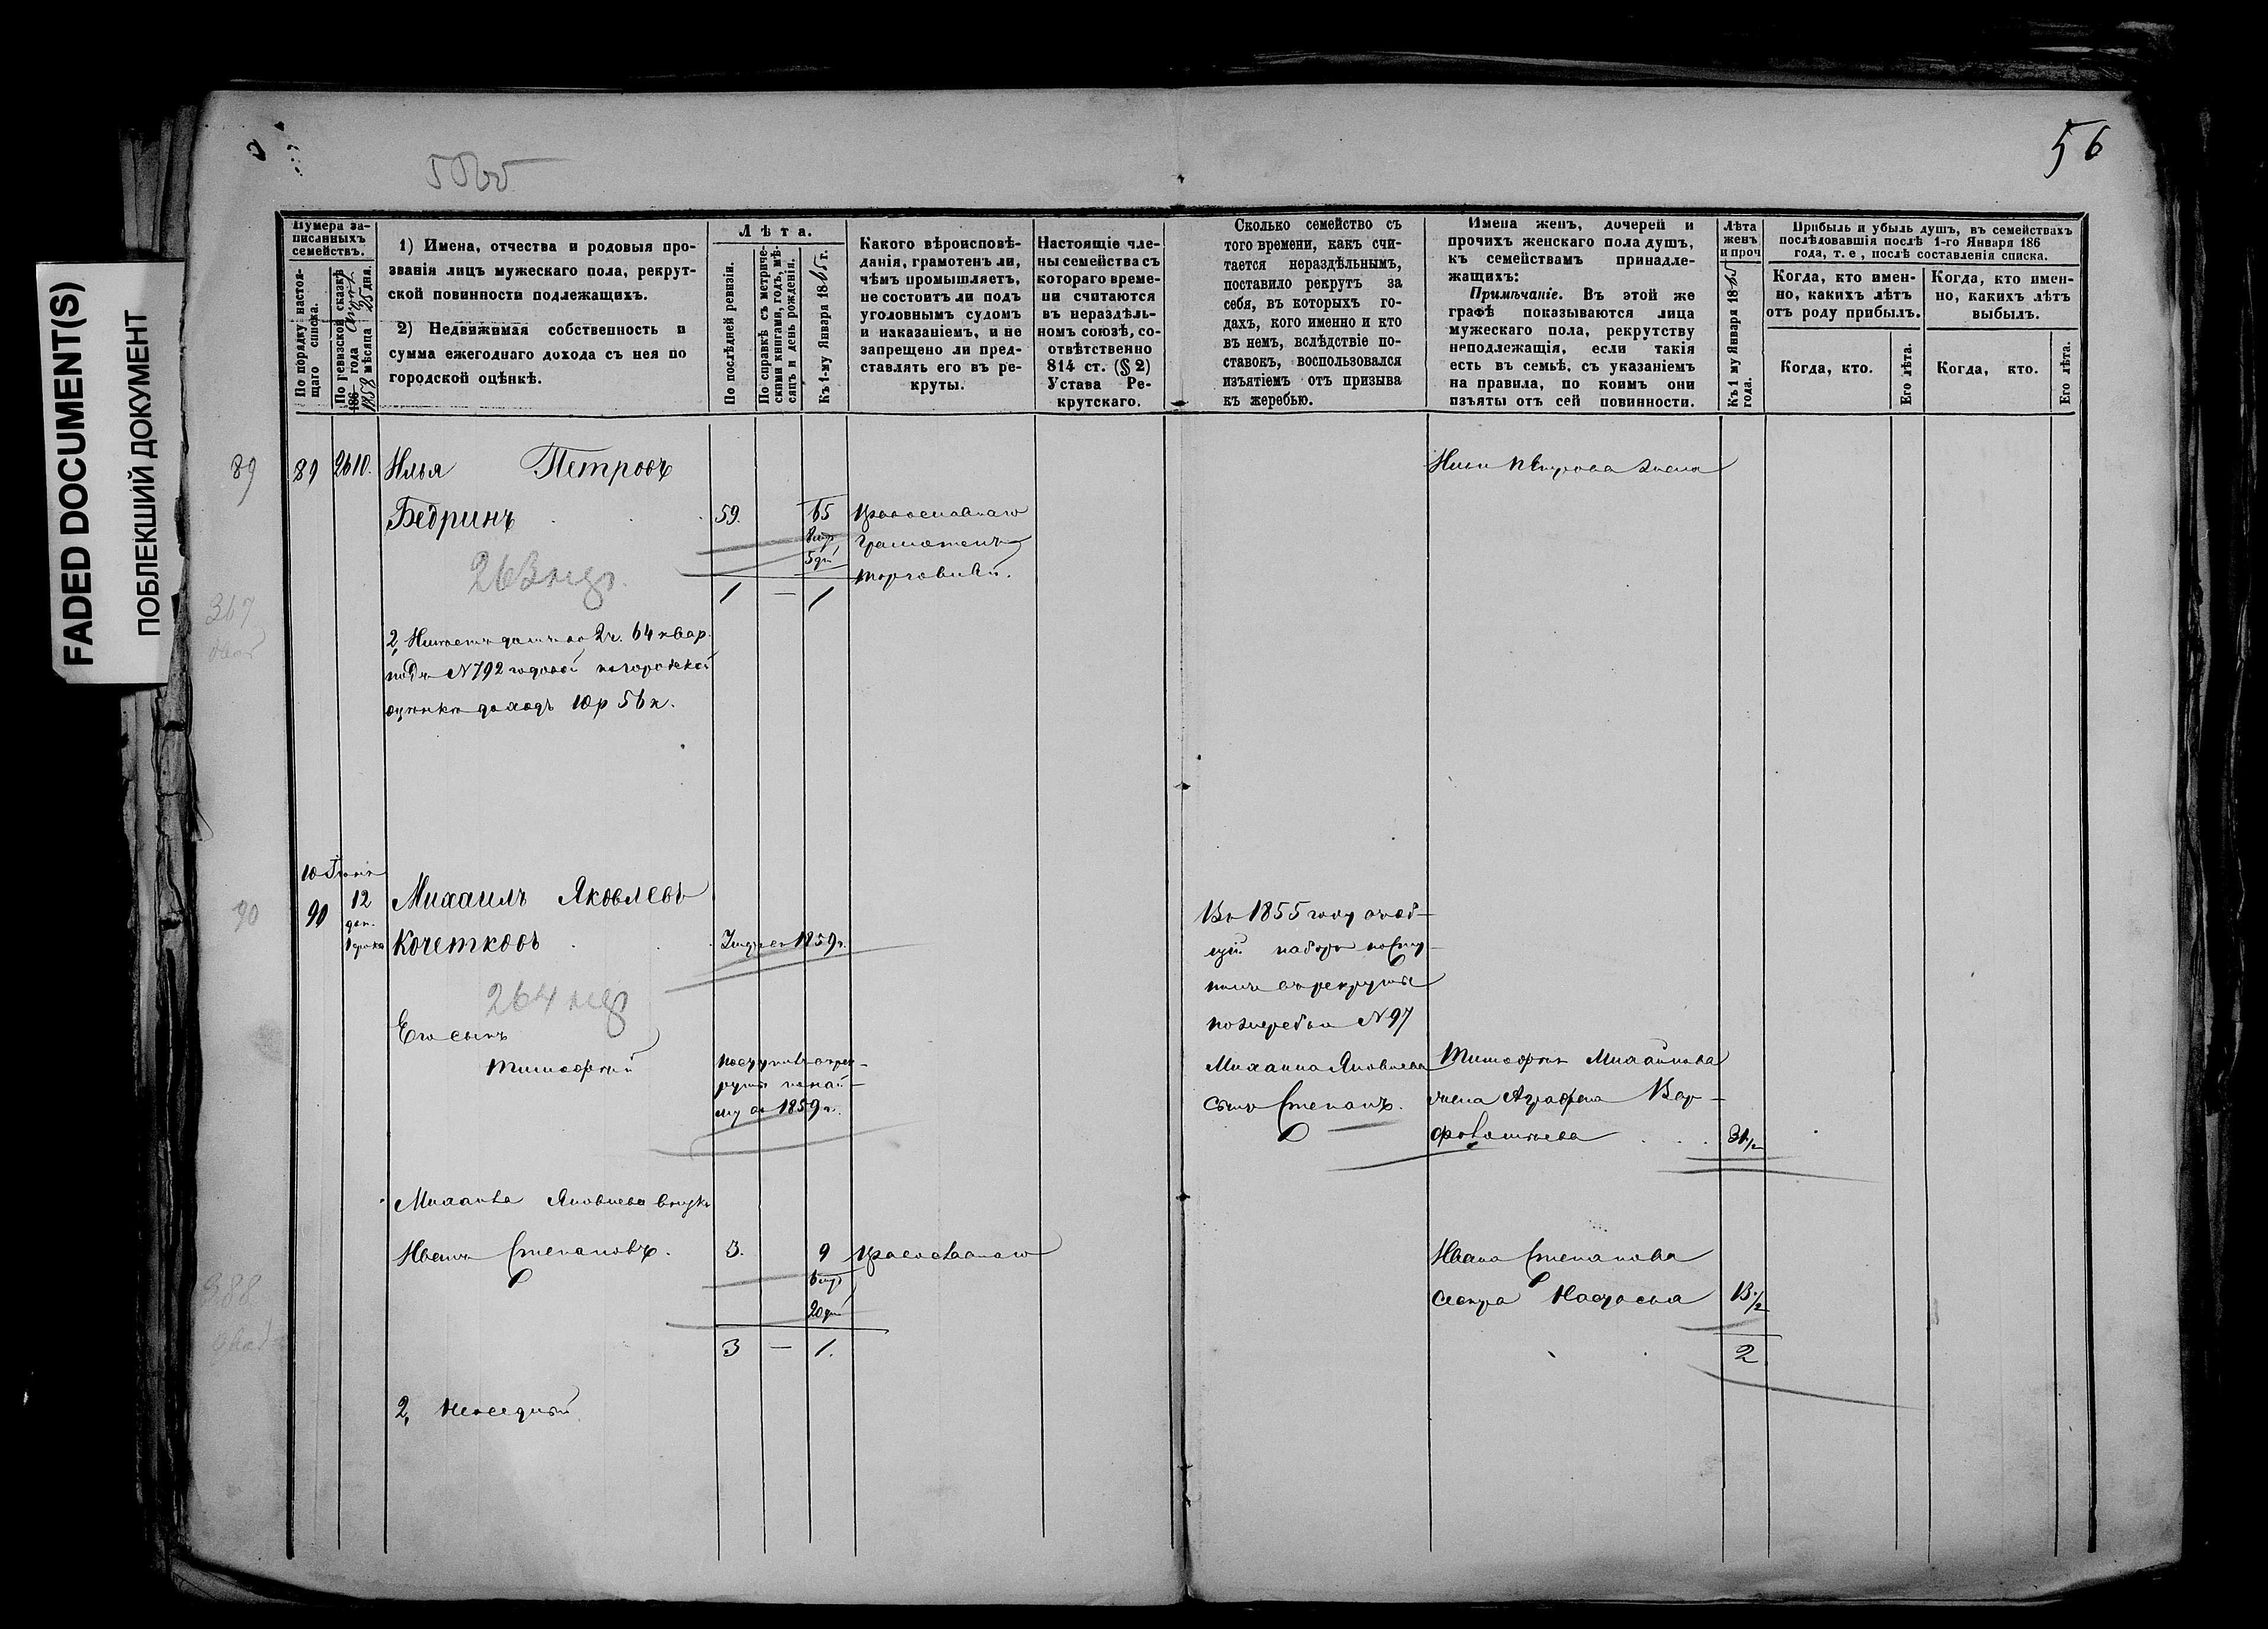 FADED DOCUMENT(S)
ПОБЛЕКШИЙ ДОКУМЕНТ
56
Нумера за-
писанныхъ
семействъ.
По порядку настоя-
щаго списка.
По ревизской сказкѣ
186 года
1858 мѣсяца 25 дня.
1) Имена, отчества и родовыя про-
званія лицъ мужескаго пола, рекрут-
ской повинности подлежащихъ.
2) Недвижимая собственность и
сумма ежегоднаго дохода съ нея по
городской оцѣнкѣ.
Лѣта.
По послѣдней ревизіи.
По справкѣ съ метриче-
скими книгами, годъ, мѣ-
сяцъ и день рожденія.
Къ 1-му Января 1865 г.
Какого вѣроисповѣ-
данія, грамотенъ ли,
чѣмъ промышляетъ,
не состоитъ ли подъ
уголовнымъ судомъ
и наказаніемъ, и не
запрещено ли пред-
ставлять его въ ре-
круты.
Настоящіе чле-
ны семейства съ
котораго време-
ни считаются
въ нераздѣль-
номъ союзѣ, со-
отвѣтственно
814 ст. (§ 2)
Устава Ре-
крутскаго.
Сколько семейство съ
того времени, какъ счи-
тается нераздѣльнымъ,
поставило рекрутъ за
себя, въ которыхъ го-
дахъ, кого именно и кто
въ немъ, вслѣдствіе по-
ставокъ, воспользовался
изъятіемъ отъ призыва
къ жеребью.
Имена женъ, дочерей и
прочихъ женскаго пола душъ,
къ семействамъ принадле-
жащихъ:
Примѣчаніе. Въ этой же
графѣ показываются лица
мужескаго пола, рекрутству
неподлежащія, если такія
есть въ семьѣ, съ указаніемъ
на правила, по коимъ они
изъяты отъ сей повинности.
Лѣта
женъ
и проч
Къ 1 му Января 1865
года.
Прибыль и убыль душъ, въ семействахъ
послѣдовавшія послѣ 1-го Января 186
года, т. е, послѣ составленія списка.
Когда, кто имен-
но, какихъ лѣтъ
отъ роду прибылъ.
Когда, кто имен-
но, какихъ лѣтъ
выбылъ.
Когда, кто.
Его лѣта.
Когда, кто.
Его лѣта.
89
89 2610. Илья Петровъ
Бедринъ 59. 65 Православнаго
5 дн
грамотенъ
торговлей.
263
1 — 1
Ильи Петрова жена
367
2, Имѣетъ домъ во 2 ч. 64 квар.
подъ N 792 годовой по городской
оцѣнке доходъ 10 р 56 к.
90
90
12
Михаилъ Яковлевъ
Кочетковъ Умре въ 1859 г.
264
Его сынъ
Тимофей
поступилъ въ рек-
руты по най-
му въ 1859 г.
Въ 1855 году въ об-
щій наборъ посту-
пилъ въ рекруты
по жеребью N 97
Михаила Яковлева
сынъ Степанъ.
Тимофея Михайлова
жена Аграфена Вар-
фоломѣева 31/2
Михаила Яковлева внукъ
Иванъ Степановъ. 3. 9 Православнаго
20 дн
3 — 1.
Ивана Степанова
сестра Настасья 13 1/2
2
388
2,